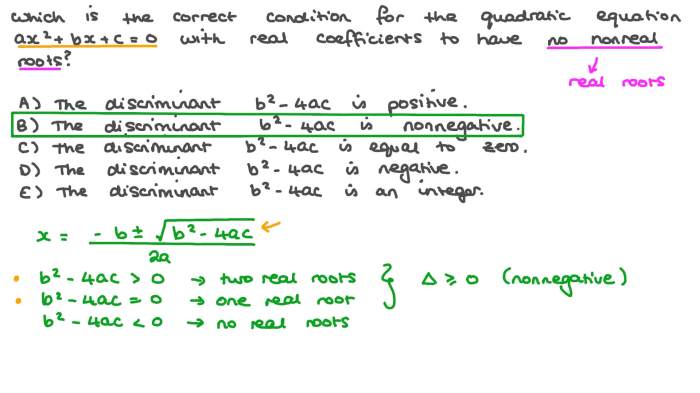 which is the correct condition for the quadratic equation
ax² + bx + c = 0 with real coefficients to have no nonreal
roots?
real roots
A) The discriminant b² - 4ac is positive.
B) The discriminant b² - 4ac is nonnegative.
C) The discriminant b² - 4ac is equal to zero.
D) The discriminant b² - 4ac is negative.
E) The discriminant b² - 4ac is an integer.
x = (-b ± √(b² - 4ac)) / 2a
• b² - 4ac > 0 → two real roots } Δ ≥ 0 (nonnegative)
• b² - 4ac = 0 → one real root
b² - 4ac < 0 → no real roots